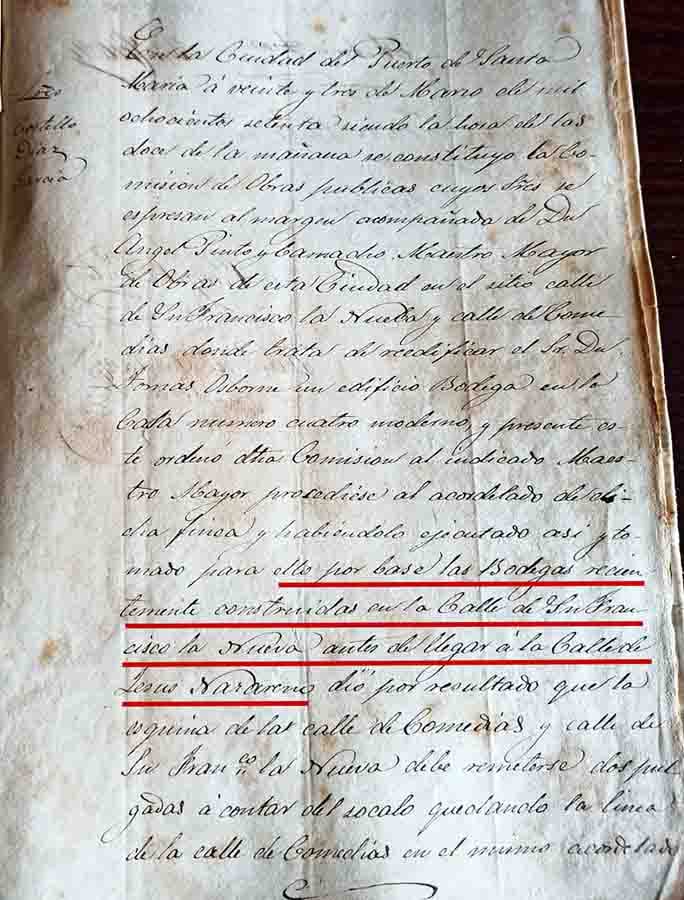 En la Ciudad del Puerto de Santa
Maria á veinte y tres de Marzo de mil
ochocientos setenta siendo la hora de las
doce de la mañana se constituyo la Co-
mision de Obras publicas cuyos Sres se
espresan al margen acompañada de Dn
Angel Pinto y Camacho Maestro Mayor
de Obras de esta Ciudad en el sitio calle
de Sn Francisco la Nueba y calle de Come-
dias donde trata de reedificar el Sr. Dn
Tomas Osborne un edificio Bodega en la
Casa numero cuatro moderno, y presente es-
te ordenó dha Comision al indicado Maes-
tro Mayor procediese al acordelado de di-
cha finca y habiendolo ejecutado asi y to-
mado para ello por base las Bodegas recien-
temente construidas en la Calle de Sn Fran-
cisco la Nueva antes de llegar á la Calle de
Jesus Nazareno dió por resultado que la
esquina de las calle de Comedias y calle de
Sn Franco la Nueva debe remeterse dos pul-
gadas á contar del socalo quedando la linea
de la calle de Comedias en el mismo acordelado
Costello
Diaz
Garcia